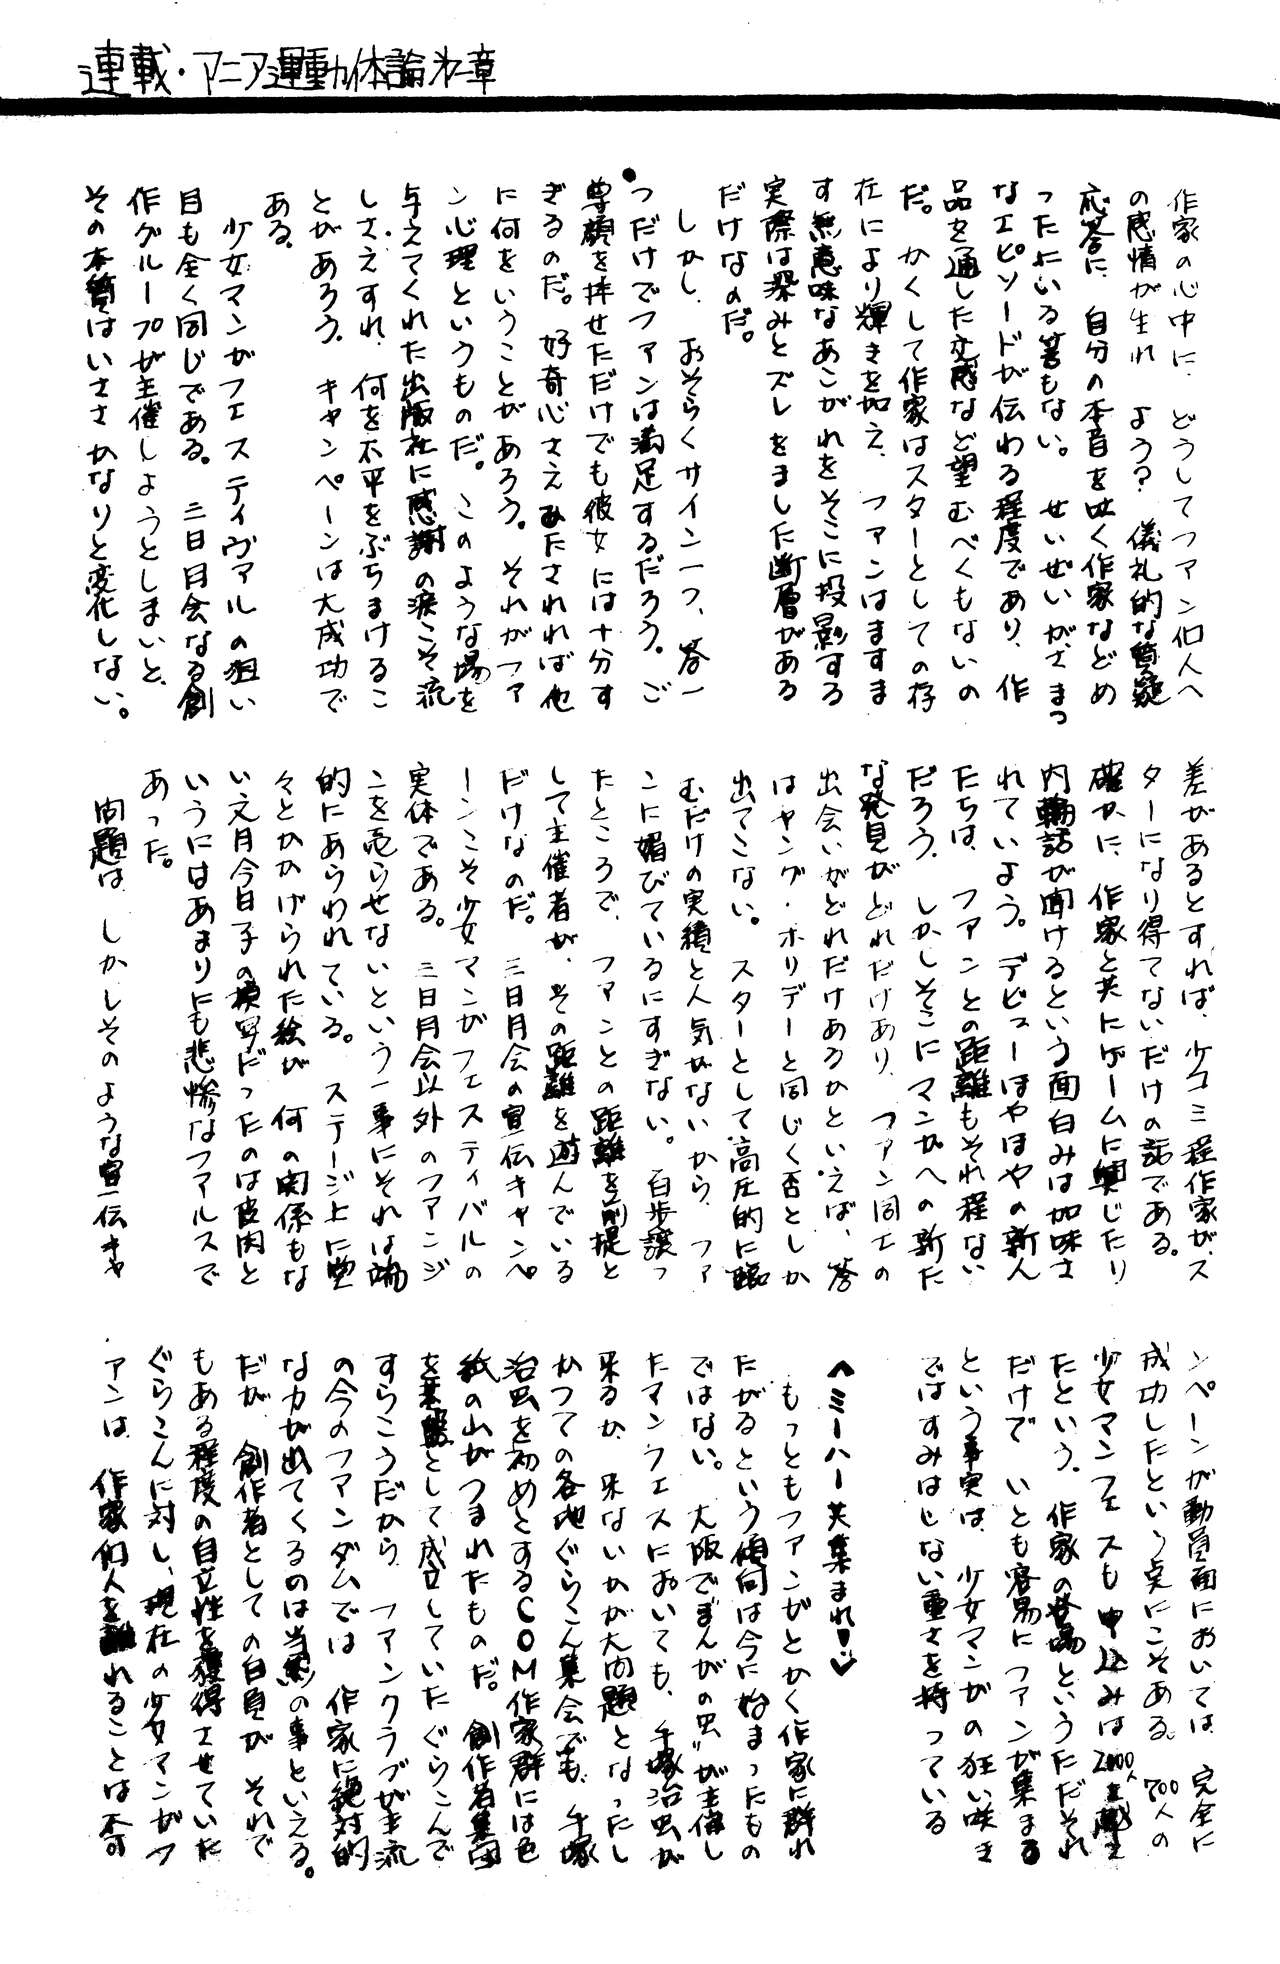 連載・マニア運動体論 第二章
作家の心中に、どうしてファン個人へ
の感情が生れ よう？ 儀礼的な質疑
応答に、自分の本音を吐く作家などめ
ったにいる筈もない。せいぜいが、さまつ
なエピソードが伝わる程度であり、作
品を通した交感など望むべくもないの
だ。かくして作家はスターとしての存
在により輝きを加え、ファンはますま
す無意味なあこがれをそこに投影する
実際は深みとズレをました断層がある
だけなのだ。
しかし、おそらくサイン一つ、答一
つだけでファンは満足するだろう。ご
尊顔を拝せただけでも彼女には十分す
ぎるのだ。好奇心さえみたされれば他
に何をいうことがあろう。それがファ
ン心理というものだ。このような場を
与えてくれた出版社に感謝の涙こそ流
しさえすれ、何を不平をぶちまけるこ
とがあろう。キャンペーンは大成功で
ある。
少女マンガフェスティヴァルの狙い
目も全く同じである。三日月会なる創
作グループが主催しようとしまいと、
その本質はいささかなりと変化しない。
差があるとすれば、少コミ程作家が、ス
ターになり得てないだけの話である。
確かに、作家と共にゲームに興じたり
内輪話が聞けるという面白みは加味さ
れていよう。デビューほやほやの新人
たちは、ファンとの距離もそれ程ない
だろう。しかしそこにマンガへの新た
な発見がどれだけあり、ファン同士の
出会いがどれだけあるかといえば、答
はヤング・ホリデーと同じく否としか
出てこない。スターとして高圧的に臨
むだけの実績と人気がないから、ファ
ンに媚びているにすぎない。百歩譲っ
たところで、ファンとの距離を前提と
して主催者が、その距離を遊んでいる
だけなのだ。三日月会の宣伝キャンペ
ーンこそ少女マンガフェスティバルの
実体である。三日月会以外のファンジ
ンを売らせないという一事にそれは端
的にあらわれている。ステージ上に堂
々とかかげられた絵が 何の関係もな
い文月今日子の模写だったのは皮肉と
いうにはあまりにも悲惨なファルスで
あった。
問題は、しかしそのような宣伝キャ
ンペーンが動員面においては、完全に
成功したという点にこそある。700人の
少女マンフェスも申込みは2000人を
たという。作家の登場というただそれ
だけで いとも容易にファンが集まる
という事実は、少女マンガの狂い咲き
ではすみはしない重さを持っている
〈ミーハー共集まれ♡〉
もっともファンがとかく作家に群れ
たがるという傾向は今に始まったもの
ではない。大阪で“まんがの虫”が主催し
たマンフェスにおいても、手塚治虫が
来るか、来ないかが大問題となったし
かつての各地ぐらこん集会でも、手塚
治虫を初めとするCOM作家群には色
紙の山がつまれたものだ。創作者集団
を基盤として成立していたぐらこんで
すらこうだから、ファンクラブが主流
の今のファンダムでは 作家に絶対的
な力が出てくるのは当然の事といえる。
だが、創作者としての自負が それで
もある程度の自立性を獲得させていた
ぐらこんに対し、現在の少女マンガフ
ァンは、作家個人を離れることは不可